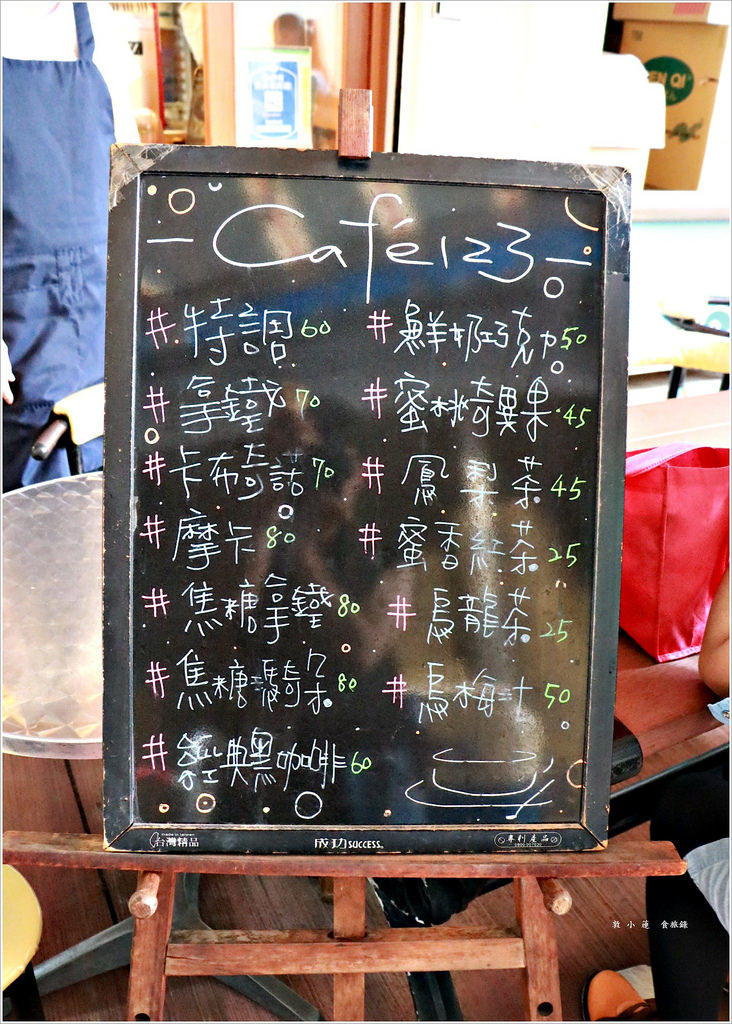 Café123
# 特調 60
# 拿鐵 70
# 卡布奇諾 70
# 摩卡 80
# 焦糖拿鐵 80
# 焦糖瑪奇朵 80
# 經典黑咖啡 60
# 鮮奶巧克力 50
# 蜜桃奇異果 45
# 鳳梨茶 45
# 蜜香紅茶 25
# 烏龍茶 25
# 烏梅汁 50
made in taiwan
台灣精品
成功 SUCCESS
專利產品
敦小蓮 食旅錄